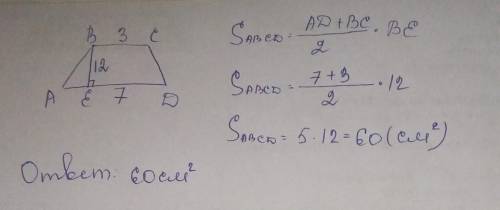 B 3 C
12
A E 7 D
S_ABCD = (AD + BC)/2 · BE
S_ABCD = (7 + 3)/2 · 12
S_ABCD = 5 · 12 = 60 (см²)
Ответ: 60 см²